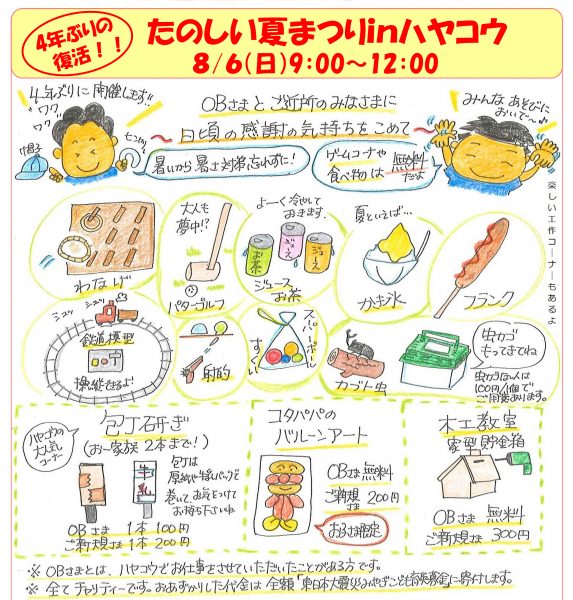 4年ぶりの
復活！！
たのしい夏まつりinハヤコウ
8/6(日)9:00〜12:00
4年ぶりに開催します!!
ワクワク
ワクワク
OBさまとご近所のみなさまに
日頃の感謝の気持ちをこめて
みんなあそびに
おいで〜♪
帽子
暑いから暑さ対策忘れずに!
ゲームコーナや
食べ物は無料だよ
楽しい工作コーナーもあるよ
わなげ
大人も
夢中!?
パターゴルフ
よーく冷やして
おきます。
お茶
ジュース
ジュース
ジュース
お茶
夏といえば…
かき氷
フランク
シュッ
シュッ
鉄道模型
操縦できるよ!
射的
スーパーボール
すくい
カブト虫
虫カゴ
もってきてね
虫かごない人は
100円/1個で
ご用意あります。
ハヤコウの
大人気
コーナー
包丁研ぎ
(お一家族2本まで!)
牛乳
包丁は
厚紙や牛乳パックで
巻いてお気をつけて
お持ち下さいね
OBさま 1本 100円
ご新規さま 1本 200円
コタパパの
バルーンアート
OBさま 無料
ご新規さま 200円
お子さま限定
木工教室
家型貯金箱
OBさま 無料
ご新規さま 300円
※ OBさまとは、ハヤコウでお仕事をさせていただいたことがある方です。
※ 全てチャリティーです。おあずかりした代金は全額「東日本大震災みやぎこども育英募金」に寄付します。